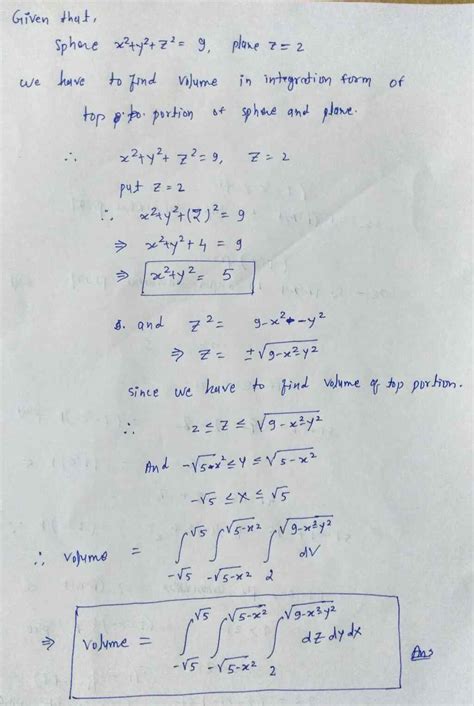 Given that,
Sphere x²+y²+z² = 9, plane z = 2
we have to find volume in integration form of
top portion of sphere and plane.
∴ x²+y²+z² = 9, z = 2
put z = 2
∴ x²+y²+(2)² = 9
⇒ x²+y²+4 = 9
⇒ x²+y² = 5
and z² = 9-x²-y²
⇒ z = ±√(9-x²-y²)
since we have to find volume of top portion.
∴ 2 ≤ z ≤ √(9-x²-y²)
And -√(5-x²) ≤ y ≤ √(5-x²)
-√5 ≤ x ≤ √5
∴ volume = ∫_{-√5}^{√5} ∫_{-√(5-x²)}^{√(5-x²)} ∫_{2}^{√(9-x²-y²)} dV
⇒ volume = ∫_{-√5}^{√5} ∫_{-√(5-x²)}^{√(5-x²)} ∫_{2}^{√(9-x²-y²)} dz dy dx Ans